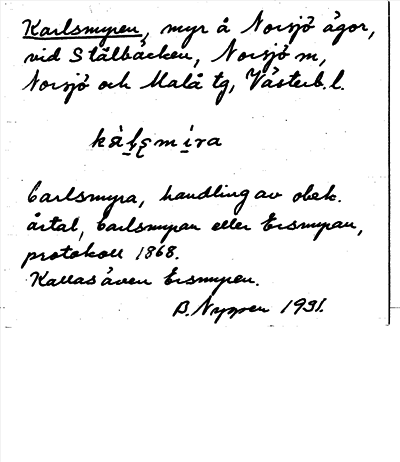 Karlsmyren, myr å Norsjö ägor,
vid Stålbäcken, Norsjö sn,
Norsjö och Malå tg, Västerb. l.
Carlsmyra, handling av obek.
årtal, Carlsmyran eller Ersmyran,
protokoll 1868.
Kallas även Ersmyren.
B. Nyppen 1931.